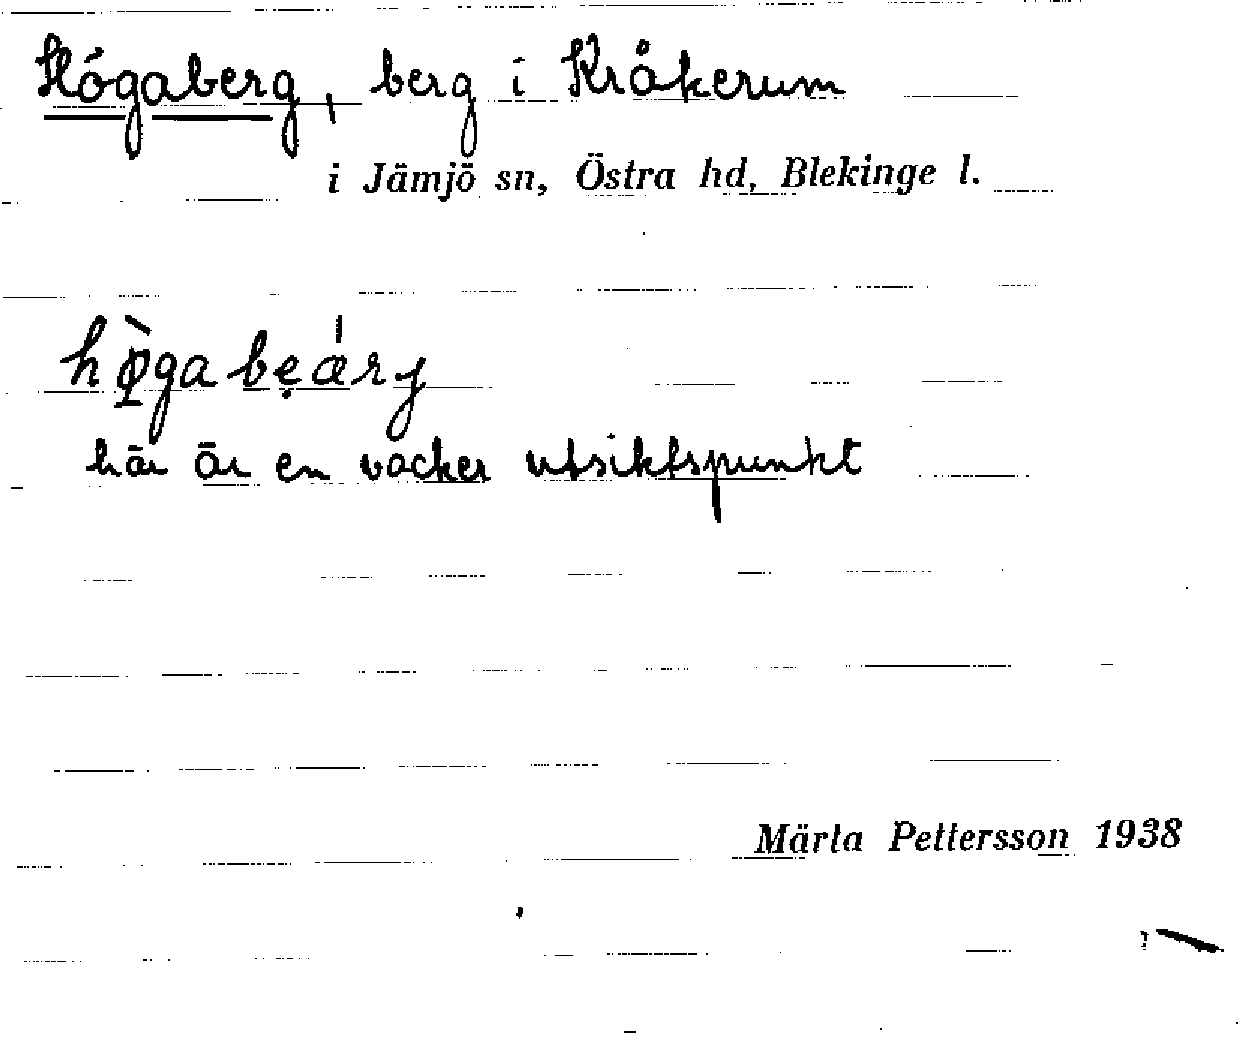 Högaberg, berg i Kråkerum
i Jämjö sn, Östra hd, Blekinge l.
hø̀ga bẹárj
här är en vacker utsiktspunkt
Märta Pettersson 1938